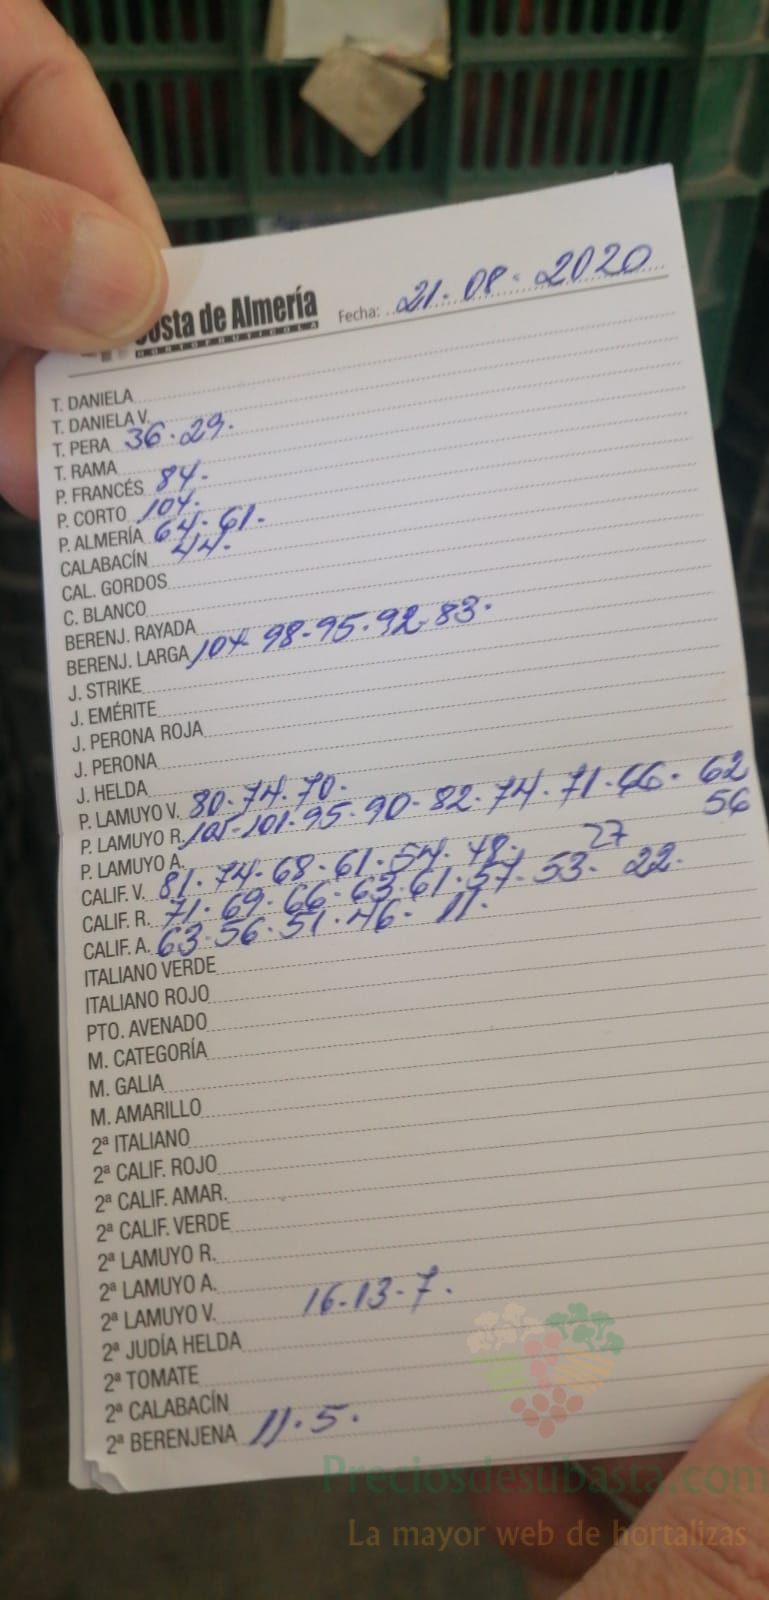 Costa de Almería Fecha: 21.08.2020
HORTOFRUTICOLA
T. DANIELA
T. DANIELA V.
T. PERA 36.29.
T. RAMA
P. FRANCÉS 84.
P. CORTO 104.
P. ALMERÍA 64.61.
CALABACÍN 44.
CAL. GORDOS
C. BLANCO
BERENJ. RAYADA
BERENJ. LARGA 104-98-95.92.83.
J. STRIKE
J. EMÉRITE
J. PERONA ROJA
J. PERONA
J. HELDA
P. LAMUYO V. 80.74.70.
P. LAMUYO R. 105-101.95.90-82.74.71.66. 62
56
P. LAMUYO A.
CALIF. V. 81.74.68.61.54.48. 27
CALIF. R. 71.69.66.63.61.57.53. 22.
CALIF. A. 63.56.51.46. 11.
ITALIANO VERDE
ITALIANO ROJO
PTO. AVENADO
M. CATEGORÍA
M. GALIA
M. AMARILLO
2ª ITALIANO
2ª CALIF. ROJO
2ª CALIF. AMAR.
2ª CALIF. VERDE
2ª LAMUYO R.
2ª LAMUYO A.
2ª LAMUYO V. 16.13.7.
2ª JUDÍA HELDA
2ª TOMATE
2ª CALABACÍN
2ª BERENJENA 11.5.
Preciosdesubasta.com
La mayor web de hortalizas